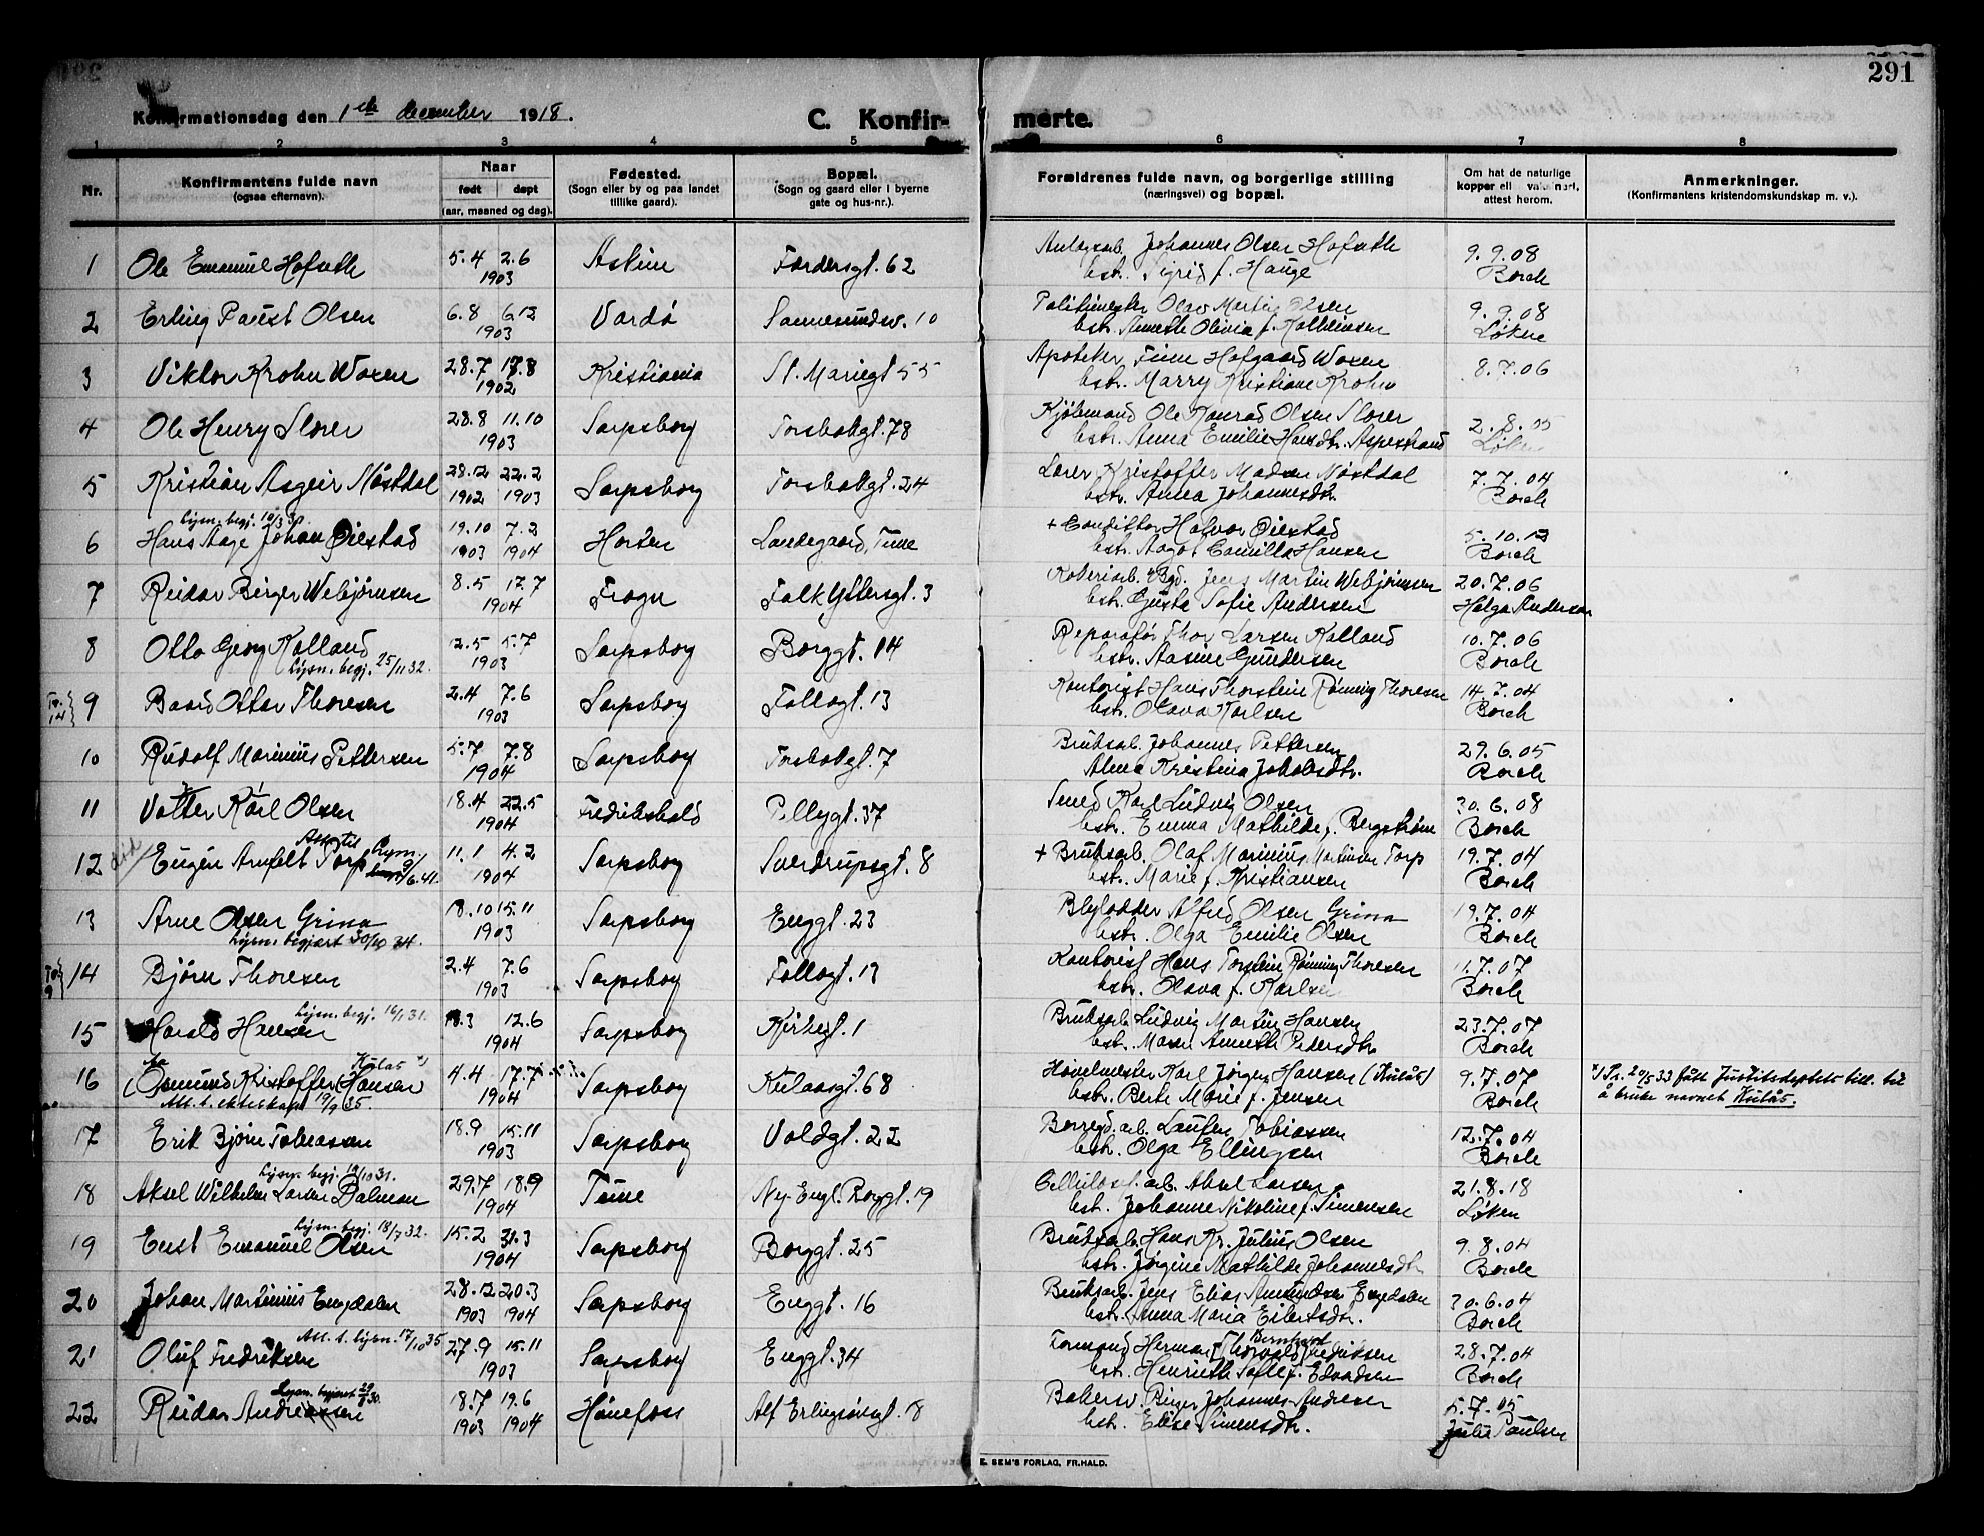 291
Konfirmationsdag den 1ste december 1918.
C. Konfirmerte.
1 2 3 4 5 6 7 8
Nr.
Konfirmantens fulde navn
(ogsaa efternavn).
Naar
født døpt
(aar, maaned og dag).
Fødested.
(Sogn eller by og paa landet
tillike gaard).
Bopæl.
(Sogn og gaard eller i byerne
gate og hus-nr.).
Forældrenes fulde navn, og borgerlige stilling
(næringsvei) og bopæl.
Om hat de naturlige
kopper ell vaksinert,
attest herom.
Anmerkninger.
(Konfirmantens kristendomskundskap m. v.).
1 Ole Emanuel Hofseth 5.4 2.6 1903 Askim Færdersgt. 62
Johannes Olsen Hofseth
hstr. Sigrid f. Hauge
9.9.08 Borch
2 Erling Paust Olsen 6.8 6.12 1903 Vardø Sannesundsv. 10
Politimester Olav Martin Olsen
hstr. Annette Olivia f.
9.9.08 Løken
3 Viktor Krohn Woxen 28.7 17.8 1902 Kristiania St. Mariegt 55
Apoteker Finn Hofgaard Woxen
hstr. Marry Kristiane Krohn
8.7.06
4 Ole Henry Slorer 28.8 11.10 1903 Sarpsborg Torsbekgt. 78
Kjøbmand Ole Konrad Olsen Slorer
hstr. Anna Emilie Hansdtr. Aspestrand
2.8.05 Løken
5 Kristian Asgeir Nøstdal 28.12 1902 22.2 1903 Sarpsborg Torsbekgt. 24
Lærer Kristoffer Madsen Nøstdal
hstr. Anna Johannesdtr.
7.7.04 Borch
lysn. begj. 10/3 30.
6 Hans Aage Johan Øiestad 19.10 1903 7.2 1904 Horten Landegaard, Tune
+ Conditor Halvor Øiestad
hstr. Aagot Camilla Hansen
5.10.13 Borch
7 Reidar Birger Webjørnsen 8.5 17.7 1904 Frogn Falk Yttersgt. 3
Jens Martin Webjørnsen
hstr. Gusta Sofie Andersen
20.7.06 Helga Andersen
8 Otto Georg Kalland 12.5 5.7 1903 Sarpsborg Borggt. 14
lysn. begj. 25/11 32.
Reparatør Thor Larsen Kalland
hstr. Aasine Gundersen
10.7.06 Borch
9 Baard Ottar Thoresen 2.4 7.6 1903 Sarpsborg Follogt. 13
Kontorist Hans Thorstein Rønning Thoresen
hstr. Olava Karlsen
14.7.04 Borch
10 Rudolf Marinius Pettersen 5.7 7.8 1904 Sarpsborg Torsbekgt. 7
Bruksarb. Johannes Pettersen
Alma Kristina Jakobsdtr.
29.6.05 Borch
11 Valter Karl Olsen 18.4 22.5 1904 Fredrikshald Pellygt. 37
Smed Karl Ludvig Olsen
hstr. Emma Mathilde f. Bergstrøm
30.6.08 Borch
Att. til lysn. 9/6.41.
12 Eugen Arnfelt Torp 11.1 4.2 1904 Sarpsborg Sverdrupsgt. 8
+ Bruksarb. Olaf Marinius Martinsen Torp
hstr. Marie f. Kristiansen
19.7.04 Borch
13 Arne Olsen Grina 18.10 15.11 1903 Sarpsborg Enggt. 23
lysn. begjært 30/10 34.
Blylodder Alfred Olsen Grina
hstr. Olga Emilie Olsen
19.7.04 Borch
14 Bjørn Thoresen 2.4 7.6 1903 Sarpsborg Follogt. 13
Kontorist Hans Torstein Rønning Thoresen
hstr. Olava f. Karlsen
11.7.07 Borch
lysn. begj. 16/1 31.
15 Harald Hansen 18.3 12.6 1904 Sarpsborg Kirkegt. 1
Bruksarb. Ludvig Martin Hansen
hstr. Maren Annette Pedersdtr
23.7.07 Borch
Kulås *)
16 (Osmund Kristoffer (Hansen) 4.4 17.7 1904 Sarpsborg Kulaasgt. 68
Att. t. ekteskap 19/9 35.
Høvelmester Karl Jørgen Hansen (Kulås)
hstr. Berte Marie f. Jensen
9.7.07 Borch
*) Pr. 20/5 33 fått Justitsdeptets till. til
å bruke navnet Kulås.
17 Erik Bjørn Tobiassen 18.9 15.11 1903 Sarpsborg Voldgt. 22
Borregd. arb. Lauften Tobiassen
hstr. Olga Ellingsen
12.7.04 Borch
lysn. begj. 19/10 31.
18 Aksel Wilhelm Larsen Dalman 29.7 18.9 1904 Tune Ny. Engl. Borggt. 19
Cellulosef. arb. Aksel Larsen
hst. Johanne Nikoline f. Simensen
21.8.18 Løken
lysn. begj. 18/7 32.
19 Ernst Emanuel Olsen 15.2 31.3 1904 Sarpsborg Borggt. 25
Bruksarb. Hans Kr. Julius Olsen
hstr. Jørgine Mathilde Johannesdtr.
9.8.04 Borch
20 Johan Martinius Engdalen 28.12 1903 20.3 1904 Sarpsborg Enggt. 16
Bruksarb. Jens Elias Amundsen Engdalen
hstr. Anna Maria Eilertsdtr.
30.6.04 Borch
Att. t. lysn. 17/10 35
21 Oluf Fredriksen 27.9 15.11 1903 Sarpsborg Enggt. 34
Bernhard
Formand Herman (Thorvald) Fredriksen
hstr. Henriette Sofie f. Edvardsen
28.7.04 Borch
lysn. begjært 29/8 30.
22 Reidar Andreassen 18.7 1903 19.6 1904 Hønefoss Alf Erlingsønsgt. 18
Bakersv. Birger Johannes Andresen
hstr. Elise Simensdtr.
5.7.05 Julie Paulsen
E. SEM'S FORLAG, FR.HALD.